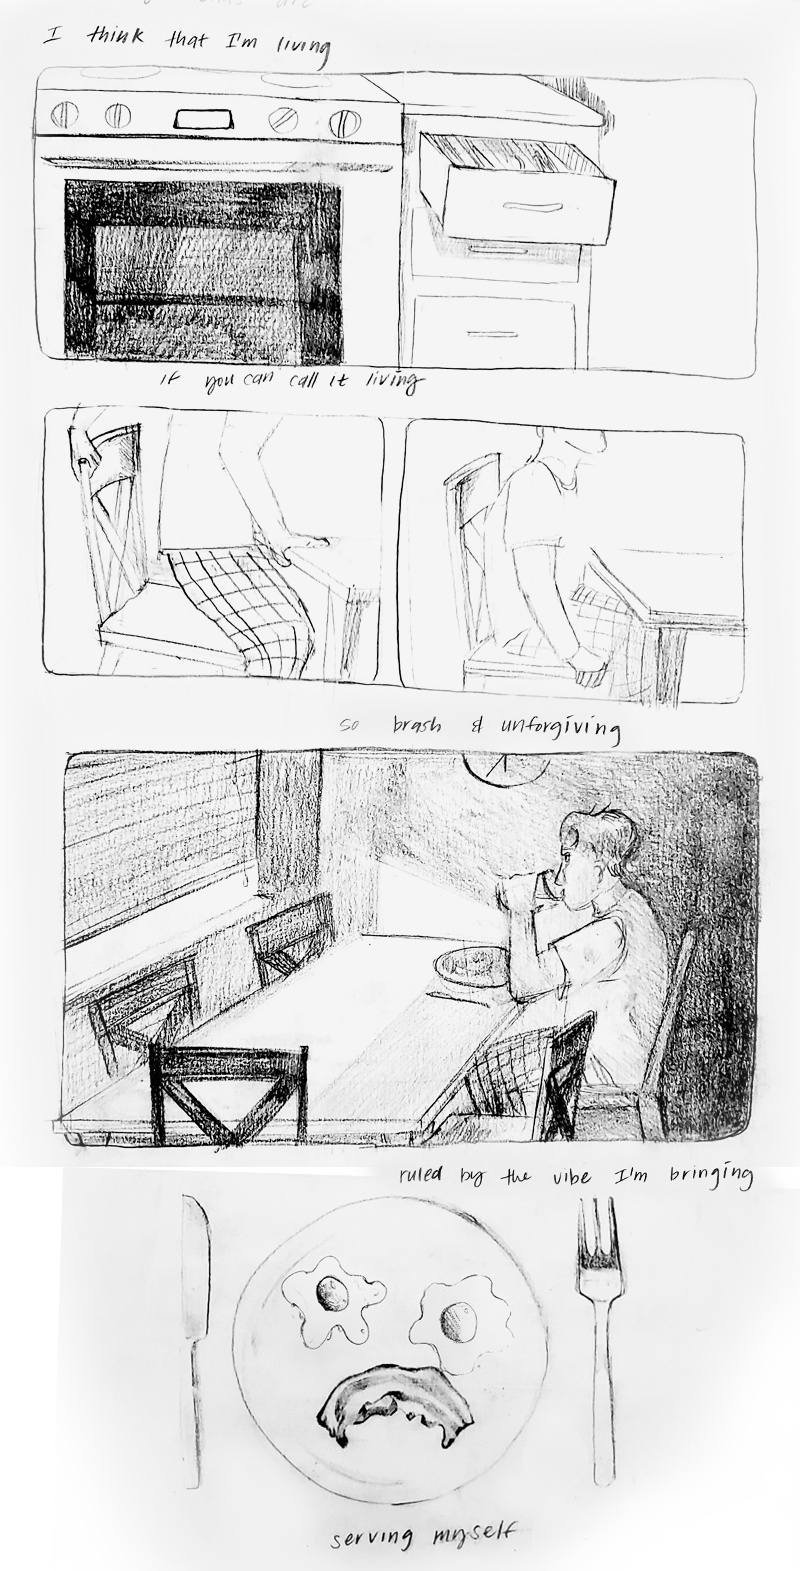 I think that I'm living
if you can call it living
so brash & unforgiving
ruled by the vibe I'm bringing
serving myself